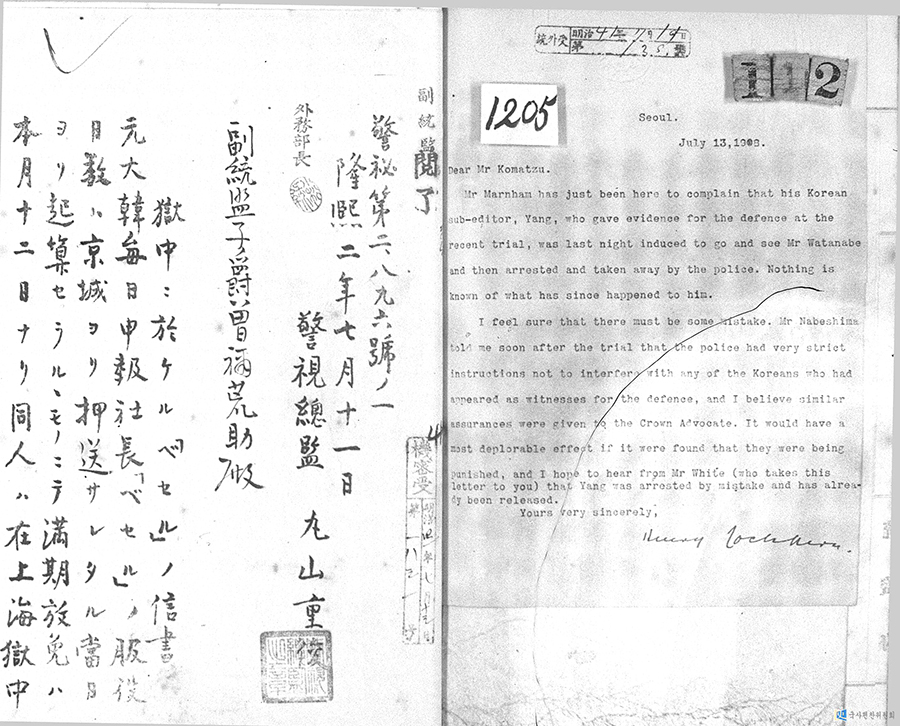 副統監
閲了
警秘第二八九六號ノ一
隆熙二年七月十一日
警視總監 丸山重俊
外務部長
副統監子爵曽祢荒助殿
獄中ニ於ケル「ベセル」ノ信書
元大韓每日申報社長「ベセル」ノ服役
日数ハ京城ヨリ押送サレタル當日
ヨリ起算セラルルモノニテ満期放免ハ
本月十二日ナリ同人ハ在上海獄中
機密受
統外受
明治41年7月14日
第135號
112
1205
Seoul.
July 13,1908.
Dear Mr Komatzu.
Mr Marnham has just been here to complain that his Korean
sub-editor, Yang, who gave evidence for the defence at the
recent trial, was last night induced to go and see Mr Watanabe
and then arrested and taken away by the police. Nothing is
known of what has since happened to him.
I feel sure that there must be some mistake. Mr Nabeshima
told me soon after the trial that the police had very strict
instructions not to interfere with any of the Koreans who had
appeared as witnesses for the defence, and I believe similar
assurances were given to the Crown Advocate. It would have a
most deplorable effect if it were found that they were being
punished, and I hope to hear from Mr White (who takes this
letter to you) that Yang was arrested by mistake and has alrea-
dy been released.
Yours very sincerely,
Henry Cockburn.
국사편찬위원회